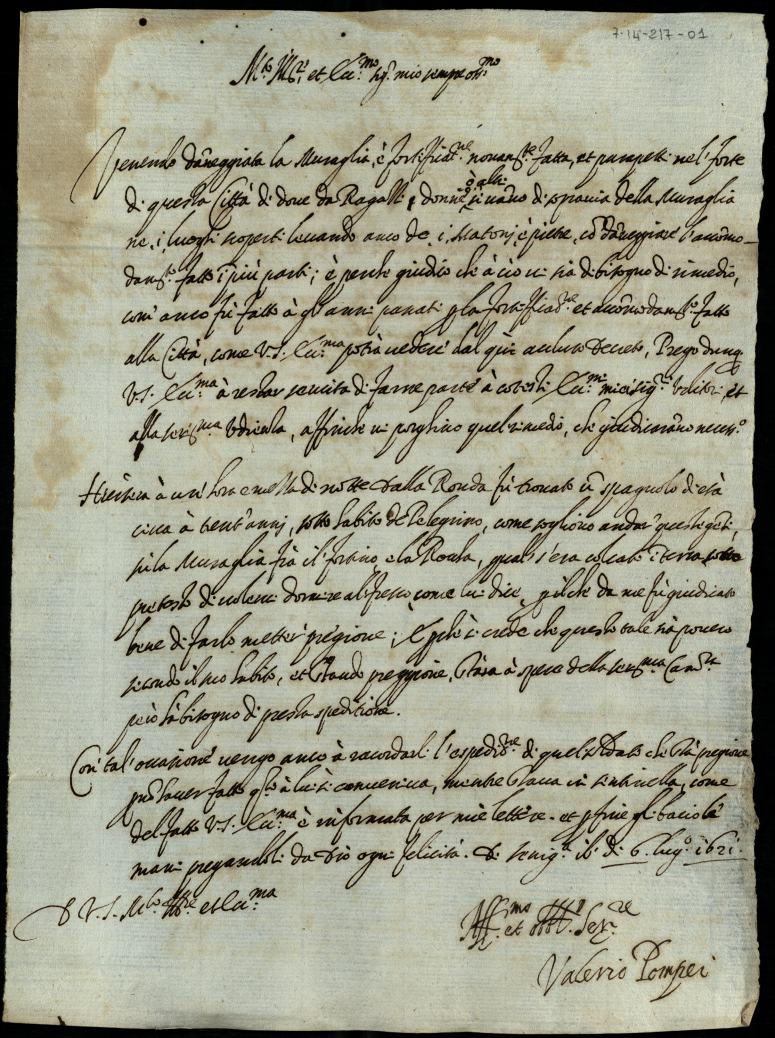 7-14-217-01
M.to Ill.re et Ecc.mo Sig.r mio sempre oss.mo
Venendo daneggiata la Muraglia, è fortificat.ne novam.te fatta, et parapetti nel forte
è altri
di questa Città di dove da Ragazzi, donne si vano di sopravia della Muraglia
ne i luoghi scoperti levando anco de i Matonj è pietre, cō daneggiare l'accomo-
dam.to fatto ī più parti; è perche giudico che à ciò vi sia di bisogno di rimedio,
com' anco fù fatto à gli anni passati p la fortifficat.ne et accōmodam.to fatto
alla Città, come V.S. Ecc.ma potrà vedere dal quì accluso Decreto, Prego dunq
V.S. Ecc.ma à restar servita di farne parte à cotesti Ecc.mi miei sig.ri Uditori et
alla Ser.ma Udienza, affinche vi porghino quel rimedio, che giudicarāno necess.o
Hiersera à un' hora e mezza di notte dalla Ronda fù trovato ū spagnolo di età
circa à trent' annj, sotto habito de Pelegrino, come sogliono andar' queste gēti,
sù la Muraglia frà il fortino e la Rocha, quale s'era colcato ī terra sotto
pretesto di volervi dormire al fresco come lui dice, p il che da me fù giudicato
bene di farlo metter' pregione; E pche si crede che questo tale sia povero
secondo il suo habito, et stando preggione, starà à spese della Ser.ma Cam.ra
però hà bisogno di presta speditione.
Con' tal' occasione vengo anco à racordarli l'espedit.ne di quel soldato che stà pregione
p nō haver fatto q.to à lui si conveniva, mentre stava in sentinella, come
del fatto V.S. Ecc.ma è informata per mie lettere. et p fine gli bacio le
mani pregandoli da Dio ogni felicità. Di Senig.a li Dì 6. lug.o 1621.
D V.S. M.to Ill.re et Ecc.ma
Aff.mo et obl.o Ser.re
Valerio Pompei